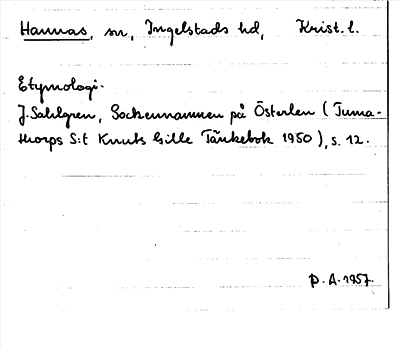 Hannas, sn, Ingelstads hd, Krist. l.
Etymologi.
J. Sahlgren, Sockennamnen på Österlen (Tuma-
thorps S:t Knuts Gille Tänkebok 1950), s. 12.
P. A. 1957.